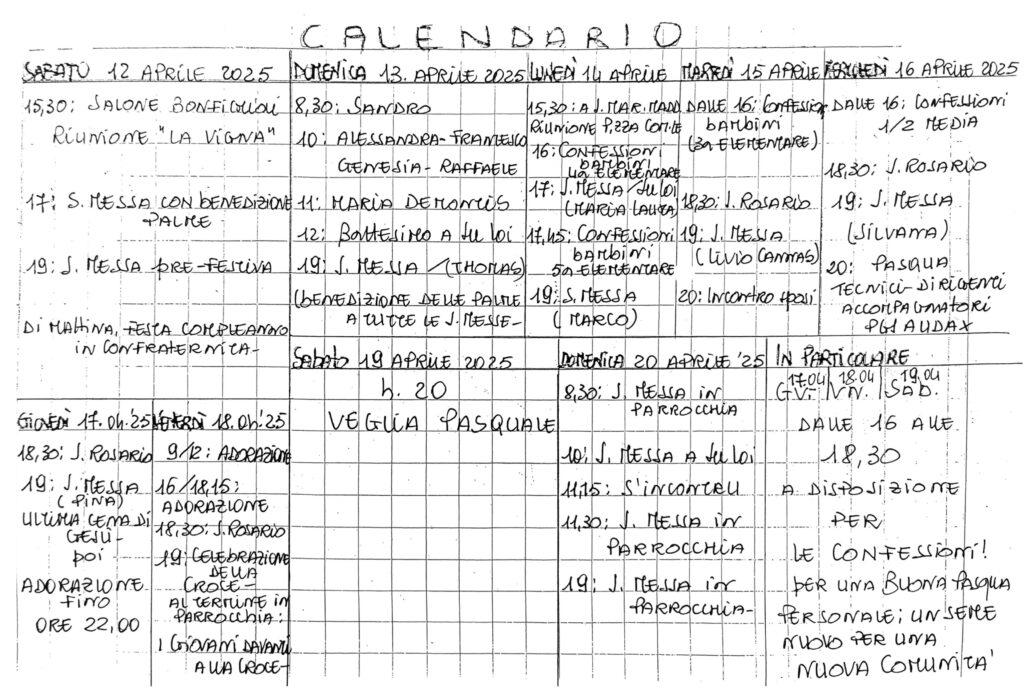 CALENDARIO
SABATO 12 APRILE 2025
15,30: SALONE BONFIGLIOLI
RIUNIONE "LA VIGNA"
17: S. MESSA CON BENEDIZIONE
PALME
19: S. MESSA PRE-FESTIVA
DI MATTINA, FESTA COMPLEANNO
IN CONFRATERNITA-
DOMENICA 13 APRILE 2025
8,30: SANDRO
10: ALESSANDRA-FRANCESCO
GENESIA-RAFFAELE
11: MARIA DEMONTIS
12: BATTESIMO A SU LOI
19: S. MESSA (THOMAS)
(BENEDIZIONE DELLE PALME
A TUTTE LE S. MESSE-
LUNEDÌ 14 APRILE
15,30: A S. MAR. MADD
RIUNIONE P.ZZA COM.LE
16: CONFESSIONI
BAMBINI
4a ELEMENTARE
17: S. MESSA/SU LOI
(MARIA LAURA)
17,45: CONFESSIONI
BAMBINI
5a ELEMENTARE
19: S. MESSA
(MARCO)
MARTEDÌ 15 APRILE
DALLE 16: CONFESSIONI
BAMBINI
(3a ELEMENTARE)
18,30: S. ROSARIO
19: S. MESSA
(LIVIO CANNAS)
20: INCONTRO SPOSI
MERCOLEDÌ 16 APRILE 2025
DALLE 16: CONFESSIONI
1/2 MEDIA
18,30: S. ROSARIO
19: S. MESSA
(SILVANA)
20: PASQUA
TECNICI-DIRIGENTI
ACCOMPAGNATORI
PGS AUDAX
GIOVEDÌ 17.04.'25
18,30: S. ROSARIO
19: S. MESSA
(PINA)
ULTIMA CENA DI
GESÙ-
POI
ADORAZIONE
FINO
ORE 22,00
VENERDÌ 18.04.'25
9/12: ADORAZIONE
16/18,15:
ADORAZIONE
18,30: S. ROSARIO
19: CELEBRAZIONE
DELLA
CROCE-
AL TERMINE IN
PARROCCHIA:
I GIOVANI DAVANTI
ALLA CROCE-
SABATO 19 APRILE 2025
h. 20
VEGLIA PASQUALE
DOMENICA 20 APRILE '25
8,30: S. MESSA IN
PARROCCHIA
10: S. MESSA A SU LOI
11,15: S'INCONTRU
11,30: S. MESSA IN
PARROCCHIA
19: S. MESSA IN
PARROCCHIA-
IN PARTICOLARE
17.04 18.04 19.04
GV. VN. SAB.
DALLE 16 ALLE
18,30
A DISPOSIZIONE
PER
LE CONFESSIONI!
PER UNA BUONA PASQUA
PERSONALE; UN SEME
NUOVO PER UNA
NUOVA COMUNITA'